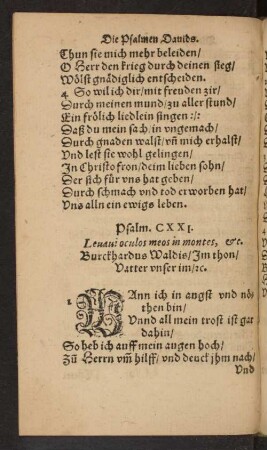 Die Psalmen Dauids.
Thun sie mich mehr beleiden/
O Herr den krieg durch deinen sieg/
Wölst gnädiglich entscheiden.
4. So wil ich dir/mit freuden zir/
Durch meinen mund/zu aller stund/
Ein frölich liedlein singen :/:
Daß du mein sach/in vngemach/
Durch gnaden walst/vñ mich erhalst/
Vnd lest sie wohl gelingen/
In Christo fron/deim lieben sohn/
Der sich für vns hat geben/
Durch schmach vnd tod erworben hat/
Vns alln ein ewigs leben.
Psalm. CXXI.
Leuaui oculos meos in montes, &c.
Burckhardus Waldis/Im thon/
Vatter vnser im/ꝛc.
1. WAnn ich in angst vnd nö-
then bin/
Vnnd all mein trost ist gar
dahin/
So heb ich auff mein augen hoch/
Zů Herrn vm̃ hilff/vnd denck jhm nach/
Vnd